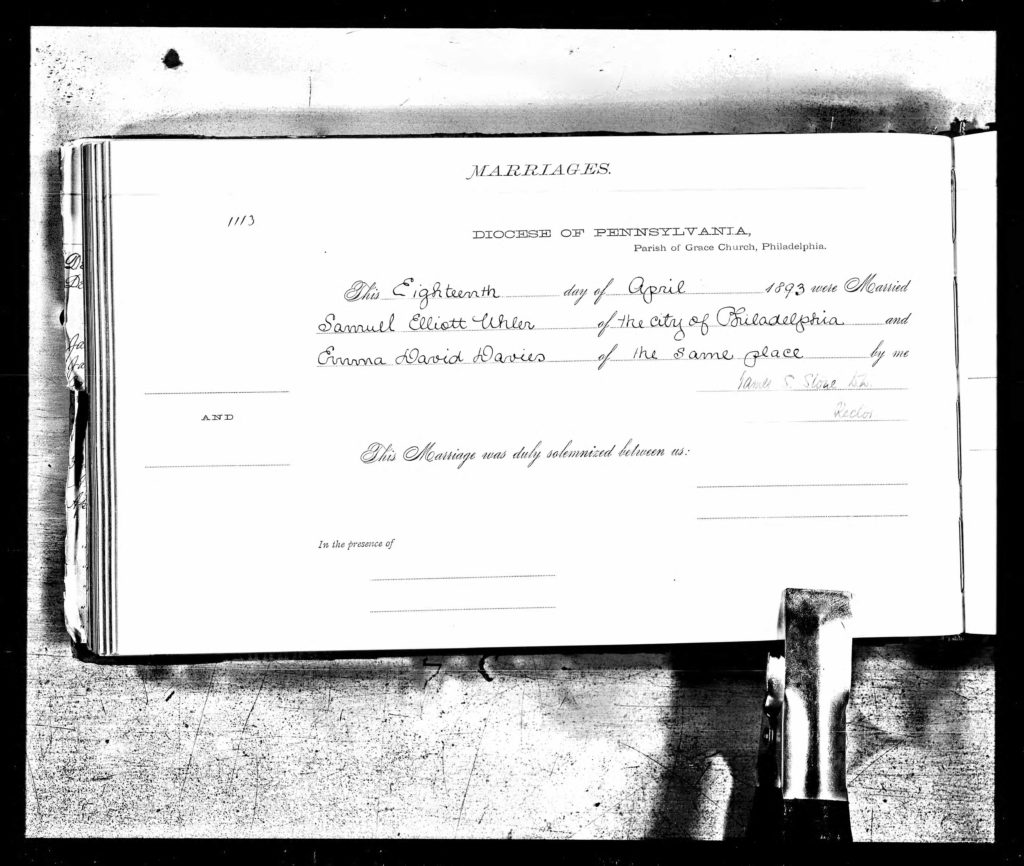 MARRIAGES.
1113
DIOCESE OF PENNSYLVANIA,
Parish of Grace Church, Philadelphia.
This Eighteenth day of April 1893 were Married
Samuel Elliott Uhler of the city of Philadelphia and
Emma David Davies of the same place by me
James S. Stone D.D.
Rector
AND
This Marriage was duly solemnized between us:
In the presence of